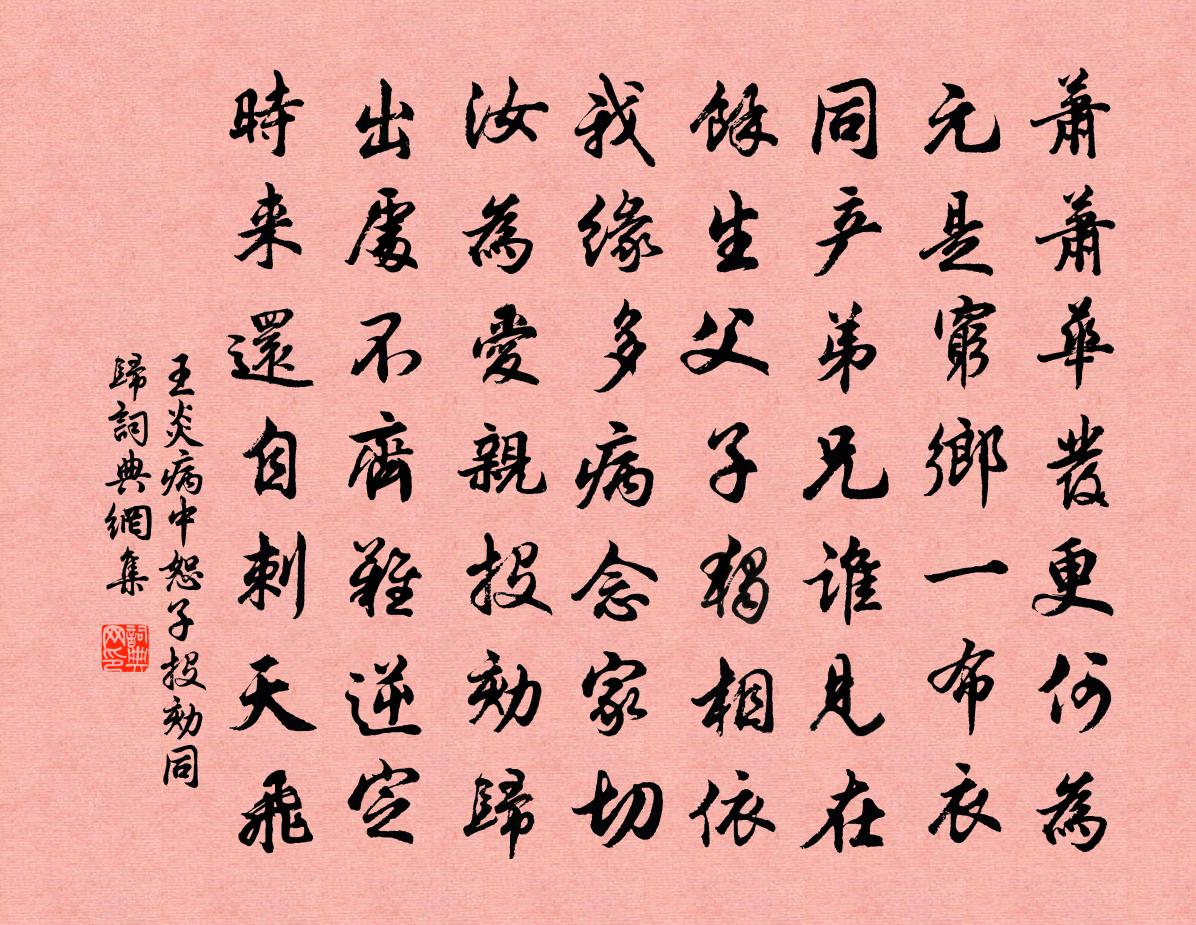 蕭蕭華髮更何為
元是窮鄉一布衣
同产弟兄誰見在
餘生父子獨相依
我緣多病念家切
汝為愛親投劾歸
出處不齊難逆定
時来還自刺天飛
王炎病中恕子投劾同
歸詞典網集
詞典网印